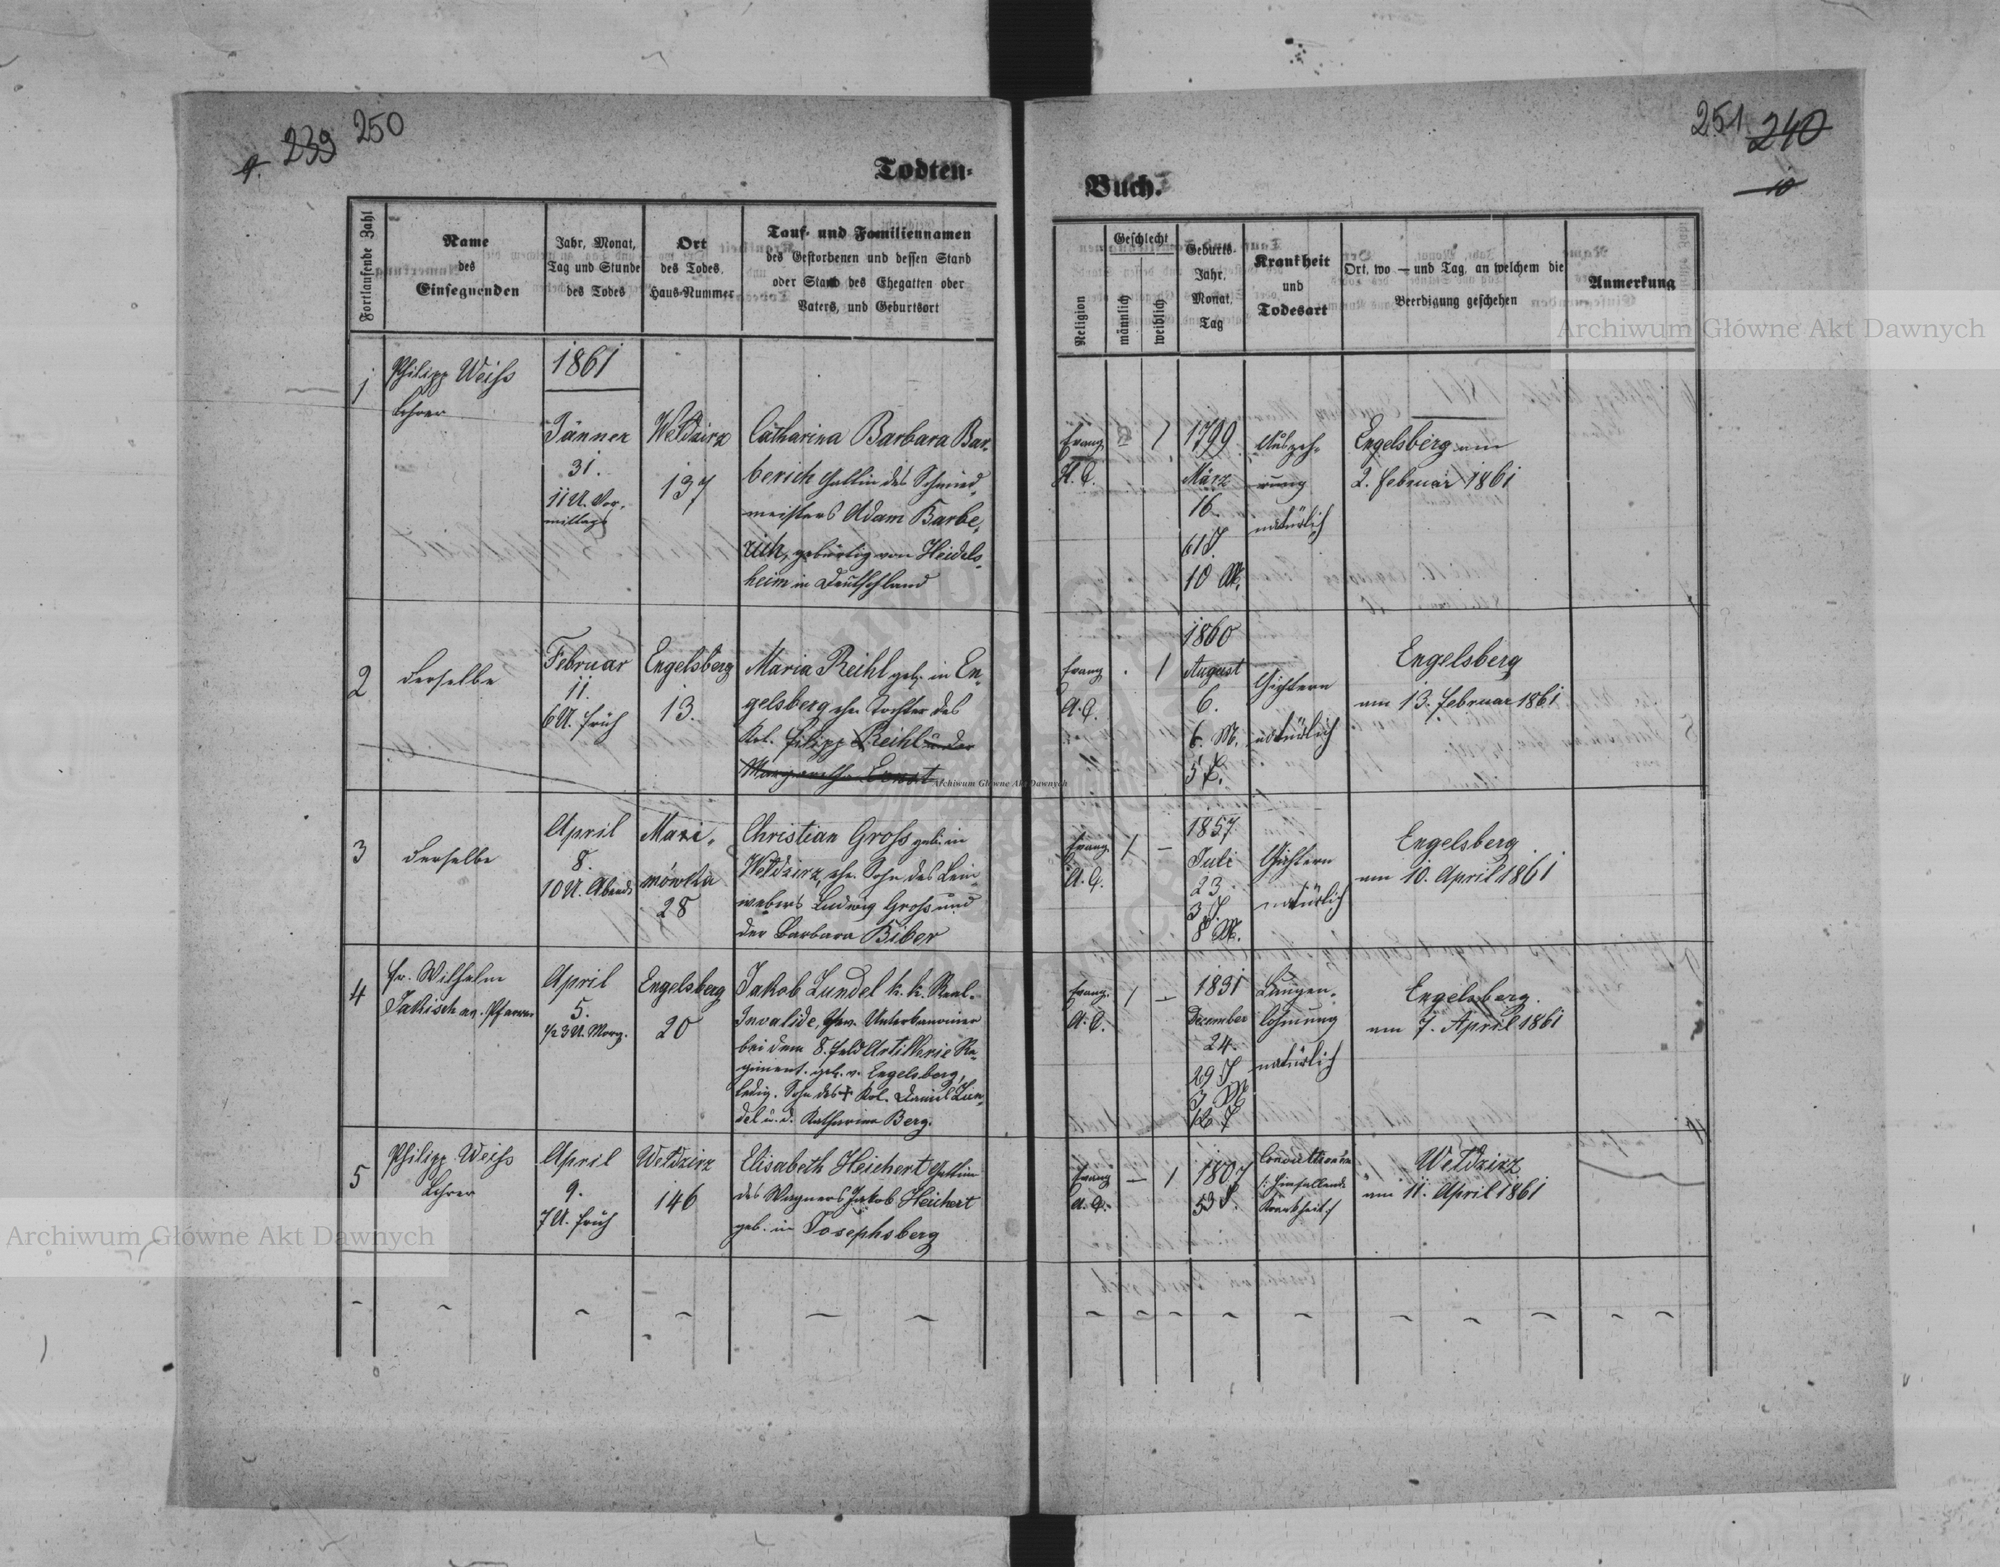 9. 239 250
251 240
10
Todten-
Buch.
Fortlaufende Zahl
Name
des
Einsegnenden
Jahr, Monat,
Tag und Stunde
des Todes
Ort
des Todes,
Haus-Nummer
Tauf- und Familiennamen
des Gestorbenen und dessen Stand
oder Stand des Ehegatten oder
Vaters, und Geburtsort
Religion
Geschlecht
männlich
weiblich
Geburts-
Jahr,
Monat,
Tag
Krankheit
und
Todesart
Ort, wo — und Tag, an welchem die
Beerdigung geschehen
Anmerkung
1
Philipp Weiss
Lehrer
1861
Jänner
31.
11 U. Vor-
mittags
Weldzirz
137
Catharina Barbara Bar-
berich Gattin des Schmied-
meisters Adam Barbe-
rich, gebürtig von Heidels-
heim in Deutschland
Evang.
H. C.
1
1799
März
16.
61 J.
10 M.
Auszeh-
rung
natürlich
Engelsberg am
2. Februar 1861
2
derselbe
Februar
11.
6 U. früh
Engelsberg
13.
Maria Reihl geb. in En-
gelsberg ehe. Tochter des
Kol. Filipp Reihl u. der
Margaretha Ernst
Evang.
A. C.
1
1860
August
6.
6. M.
5 T.
Gichtern
natürlich
Engelsberg
am 13. Februar 1861
3
derselbe
April
8.
10 U. Abends
Mazi-
mówka
28
Christian Gross geb. in
Weldzirz, ehe. Sohn des Lein-
webers Ludwig Gross und
der Barbara Biber
Evang.
A. C.
1 —
1857
Juli
23.
3 J.
8 M.
Gichtern
natürlich
Engelsberg
am 10. April 1861
4
fr. Wilhelm
Jakisch ev. Pfarrer
April
5.
1/2 3 U. Morg.
Engelsberg
20
Jakob Lundel k. k. Real-
Invalide, Gew. Unterkanonier
bei dem 8. Feld Artillerie Re-
giment. geb. v. Engelsberg,
ledig. Sohn des + Kol. Daniel Lun-
del u. d. Katharina Berg.
Evang.
A. C.
1 —
1831
December
24.
29 J
3 M
12 T
Lungen-
lähmung
natürlich
Engelsberg.
am 7. April 1861
5
Philipp Weiss
Lehrer
April
9.
7 U. früh
Weldzirz
146
Elisabeth Heichert Gattin
des Wagners Jakob Heichert
geb. in Josephsberg
Evang
A. C.
— 1
1807
53 J.
/: Hinfallende
Krankheit :/
Weldzirz
am 11. April 1861
Archiwum Główne Akt Dawnych
Archiwum Główne Akt Dawnych
Archiwum Główne Akt Dawnych